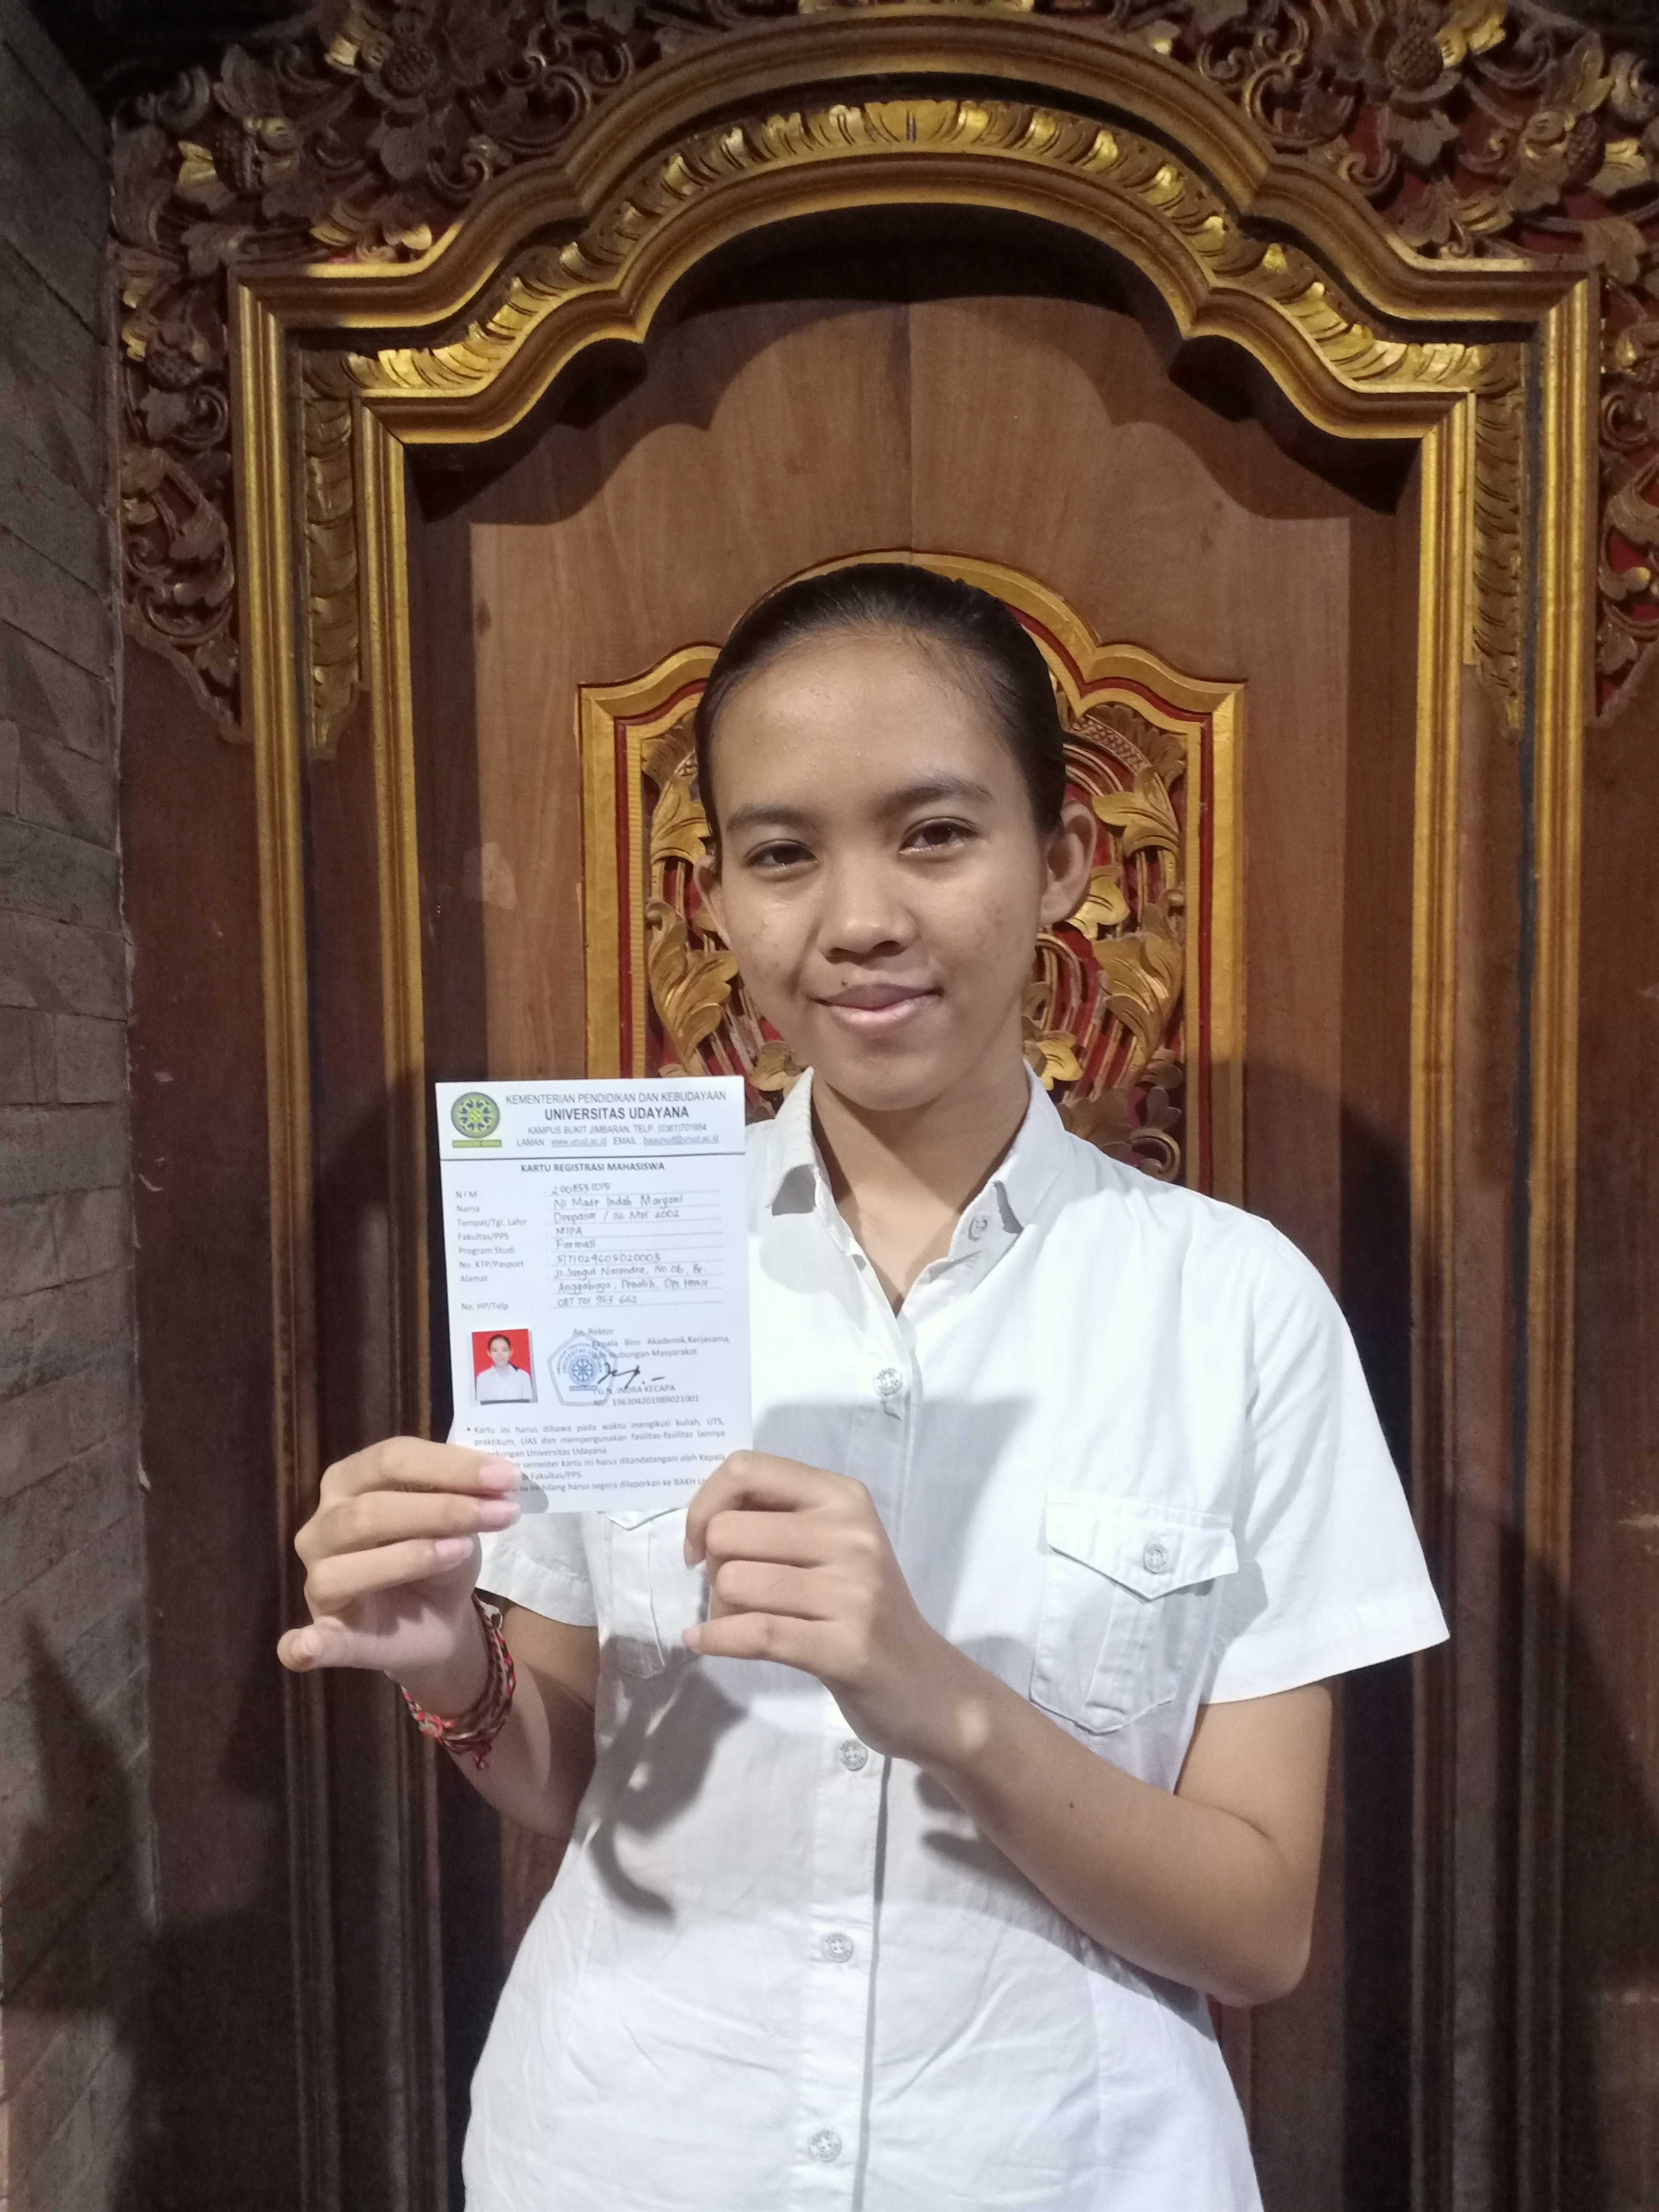 KEMENTERIAN PENDIDIKAN DAN KEBUDAYAAN
UNIVERSITAS UDAYANA
KAMPUS BUKIT JIMBARAN, TELP: (0361)701954
LAMAN : www.unud.ac.id EMAIL : baaunud@unud.ac.id
KARTU REGISTRASI MAHASISWA
N I M 2008551015
Nama Ni Made Indah Maryani
Tempat/Tgl. Lahir Denpasar / 06 Mei 2002
Fakultas/PPS MIPA
Program Studi Farmasi
No. KTP/Pasport
Alamat Jl. Narendra, No. 06, Br.
Anggabaya, Penatih, Dps
No. HP/Telp
An. Rektor
Kepala Biro Akademik,Kerjasama,
Hubungan Masyarakat
I G N. INDRA KECAPA
NIP. 196304201989021001
• Kartu ini harus dibawa pada waktu mengikuti kuliah, UTS,
praktikum, UAS dan mempergunakan fasilitas-fasilitas lainnya
Universitas Udayana.
semester kartu ini harus ditandatangani oleh Kepala
di Fakultas/PPS.
ini hilang harus segera dilaporkan ke BAKH